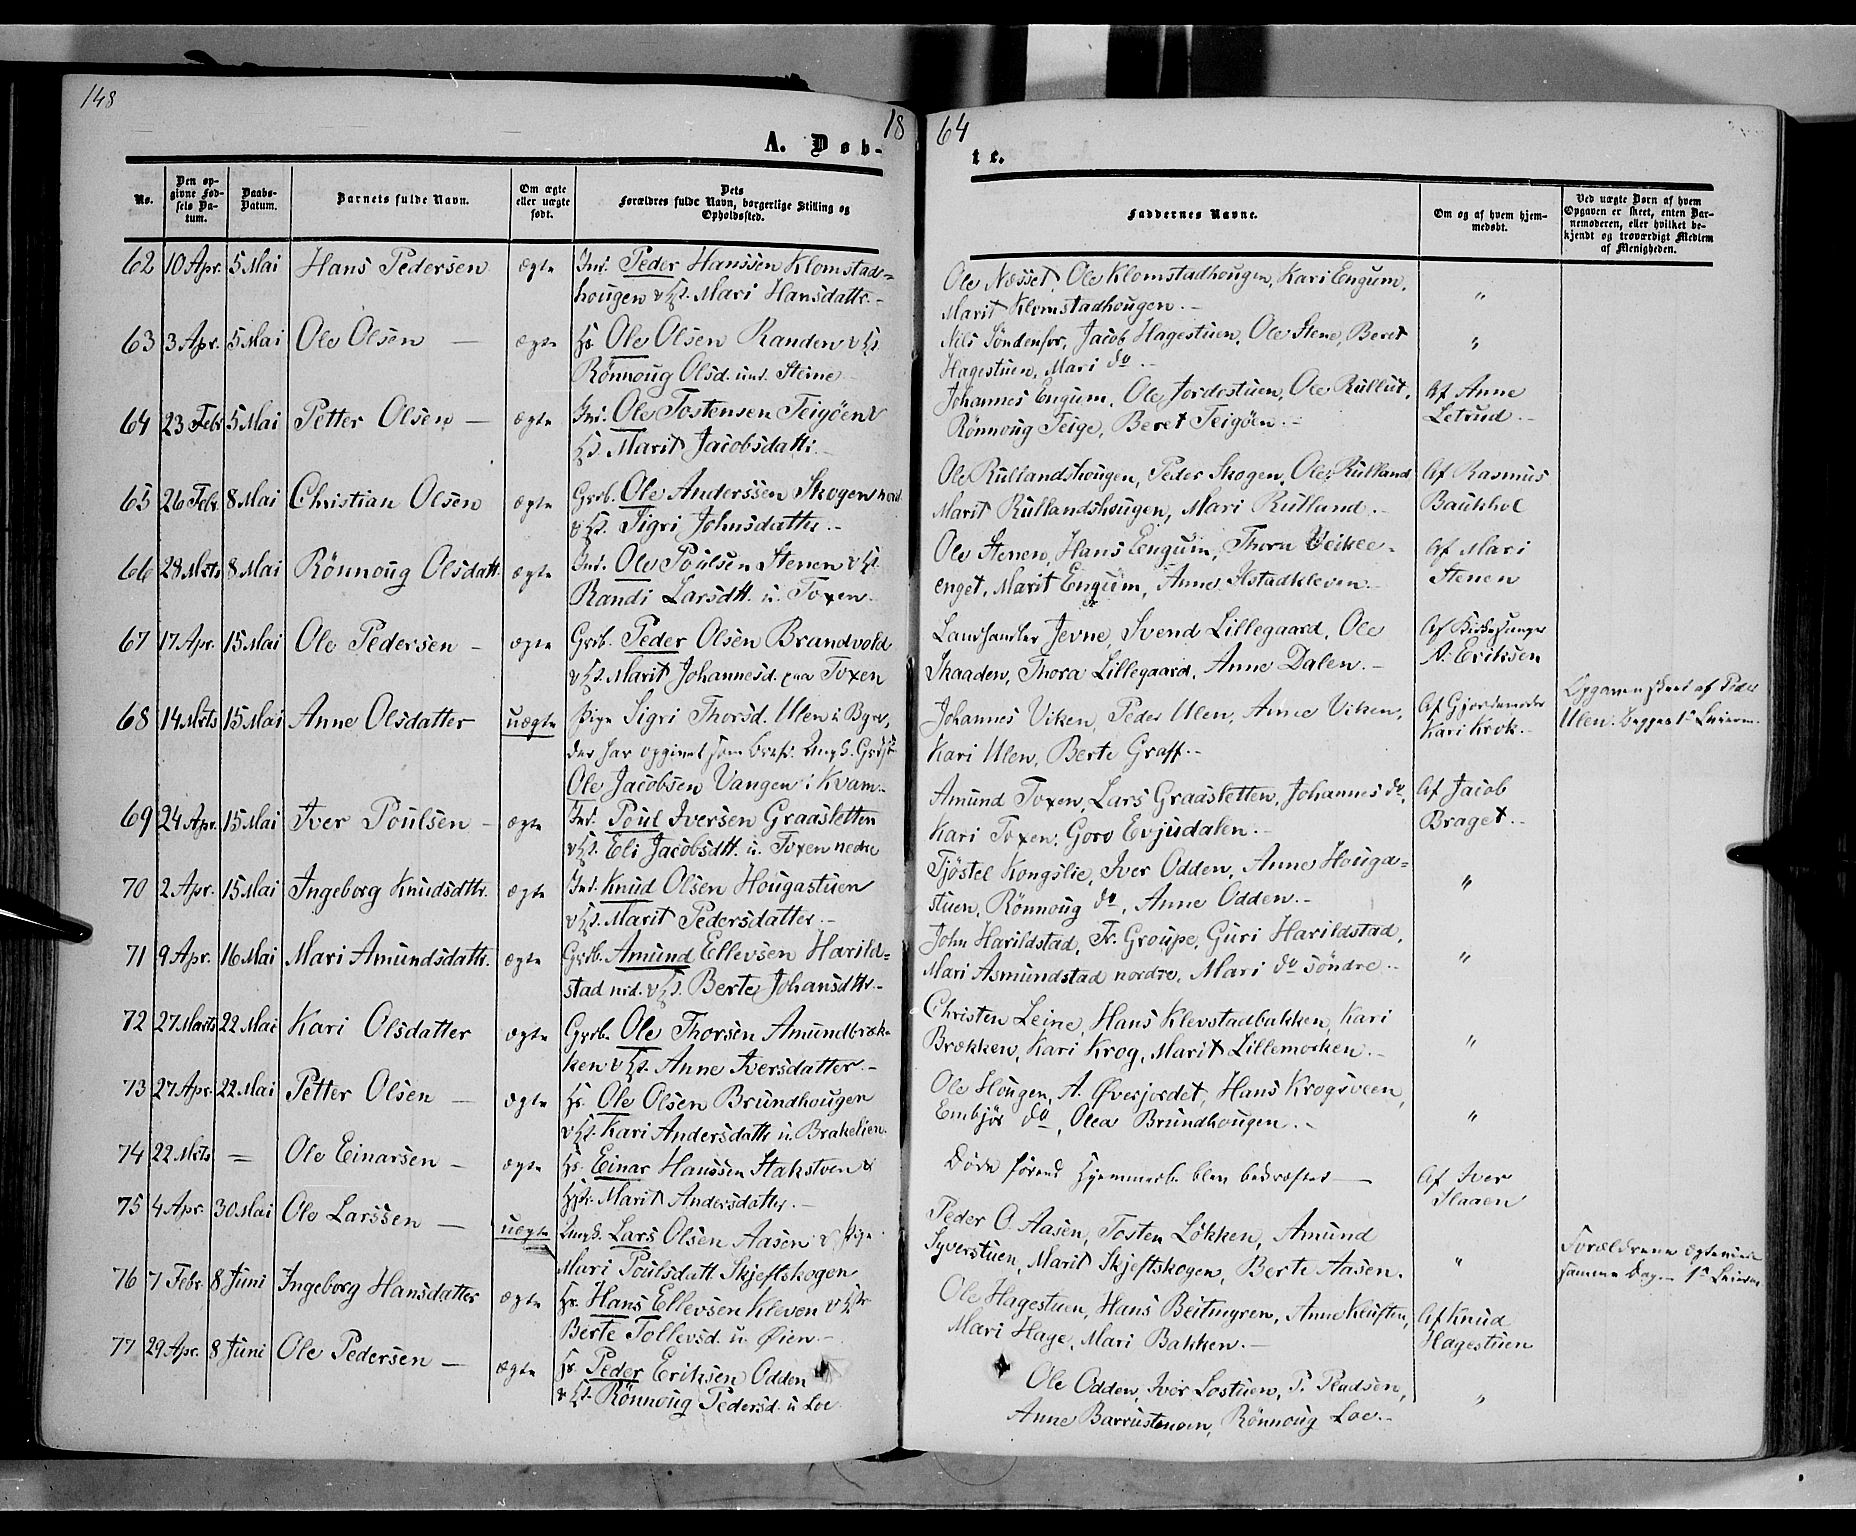 148
1864
A. Døbte.
No.
Den opgivne Fødsels Datum.
Daabs-Datum.
Barnets fulde Navn.
Om ægte eller uægte født.
Dets Forældres fulde Navn, borgerlige Stilling og Opholdssted.
Faddernes Navne.
Om og af hvem hjemmedøbt.
Ved uægte Børn af hvem Opgaven er skeet, enten Barnemoderen, eller hvilket bekjendt og troværdigt Medlem af Menigheden.
62 10 Apr. 5 Mai Hans Pedersen ægte Ind. Peder Hanssen Klomstad=
hougen & Hst. Mari Hansdattr.-
Ole Næsset, Ole Klomstadhougen, Kari Engum,
Marit Klomstadhougen.-
"
63 3 Apr. 5 Mai Ole Olsen — ægte Hs. Ole Olsen Randen & Hst.
Rönnoug Olsd. und. Steine
Nils Söndenfor, Jacob Hagestuen, Ole Stene, Beret
Hagestuen, Mari do.-
"
64 23 Febr 5 Mai Petter Olsen — ægte Ind. Ole Tostensen Teigöen &
Hst. Marit Jacobsdattr.
Johannes Engum, Ole Jordestuen, Ole Rullut,
Rönnoug Teige, Beret Teigöen.-
Af Anne
Letrud.-
65 26 Febr. 8 Mai Christian Olsen ægte Grb. Ole Anderssen Skogen nord.
& Hst. Sigri Johnsdatter.-
Ole Rullandshougen, Peder Skogen, Ole Rulland
Marit Rullandshougen, Mari Rulland.-
Af Rasmus
Baukhol
66 28 Mrts 8 Mai Rönnoug Olsdatt. ægte Ind. Ole Poulsen Stenen & Hst.
Randi Larsdtt. u. Toxen.
Ole Stenen, Hans Engum, Thora Veikle-
enget, Marit Engum, Anne Ilstadkleven.-
Af Mari
Stenen
67 17 Apr. 15 Mai Ole Pedersen - ægte Grb. Peder Olsen Brandvold
& Hst. Marit Johannesd. paa Toxen
Landhandler Jevne, Svend Lillegaard, Ole
Skaaden, Thora Lillegaard, Anne Dalen.-
Af Kirkesanger
A. Eriksen
68 14 Mrts 15 Mai Anne Olsdatter uægte Pige Sigri Thorsd. Ulen i Bygd,
der har opgivet som Barnef. Ungk. Grdsøn
Ole Jacobsen Vangen i Kvam.-
Johannes Viken, Peder Ulen, Anne Viken,
Kari Ulen, Berte Graff.-
Af Gjordemoder
Kari Krok.-
Opgaven skeet af Peder
Ulen. Begges 1ste Leierm.
69 24 Apr. 15 Mai Iver Poulsen - ægte Ind. Poul Iversen Graasletten
& Hst. Eli Jacobsdtt. u. Toxen nedre
Amund Toxen, Lars Graasletten, Johannes do,
Kari Toxen, Goro Evjudalen.-
Af Jacob
Braget.-
70 2 Apr. 15 Mai Ingeborg Knudsdttr. ægte Ind. Knud Olsen Hougastuen
& Hst. Marit Pedersdatter.-
Tjöstel Kongslie, Iver Odden, Anne Houga=
stuen, Rönnoug do, Anne Odden.-
"
71 9 Apr. 16 Mai Mari Amundsdattr. ægte Grb. Amund Ellevsen Harild=
stad nrd. & Hst. Berte Johansdttr.-
John Harildstad, Fr. Groupe, Guri Harildstad,
Mari Asmundstad nordre, Mari do söndre.-
"
72 27 Marts 22 Mai Kari Olsdatter ægte Grb. Ole Thorsen Amundbræk-
ken & Hst. Anne Iversdatter.-
Christen Leine, Hans Klevstadbakken, Kari
Brækken, Kari Krog, Marit Lillemorken.-
"
73 27 Apr. 22 Mai Petter Olsen — ægte Hs. Ole Olsen Brundhougen
& Hst. Kari Andersdattr u. Brakelien.
Ole Hougen, A. Øverjordet, Hans Krogsveen,
Embjör do, Olea Brundhougen.-
"
74 22 Mrts = Ole Einarsen - ægte Hs. Einar Hanssen Stakstuen &
Hst. Marit Andersdatter.-
Döde förend Hjemmedb. blev bekræftet —
Af Iver
Slaaen
75 4 Apr. 30 Mai Ole Larssen — uægte Ungk. Lars Olsen Aasen & Pige
Mari Poulsdatt. Skjeftskogen
Peder O. Aasen, Tosten Lökken, Amund
Syverstuen, Marit Skjeftskogen, Berte Aasen.
"
Forældrene ægteviede
samme Dag.- 1ste Leierm.
76 7 Febr. 8 Juni Ingeborg Hansdatter ægte Hs. Hans Ellevsen Kleven & Hst.
Berte Tollevsd. u. Øien.-
Ole Hagestuen, Hans Beitugren, Anne Kluften,
Mari Hage, Mari Bakken.-
Af Knud
Hagestuen
77 29 Apr. 8 Juni Ole Pedersen — ægte Hs. Peder Eriksen Odden
& Hst. Rönnoug Pedersd. u. Loe
Ole Odden, Iver Lostuen, P. Pladsen,
Anne Barrustuen, Rönnoug Loe.-
"